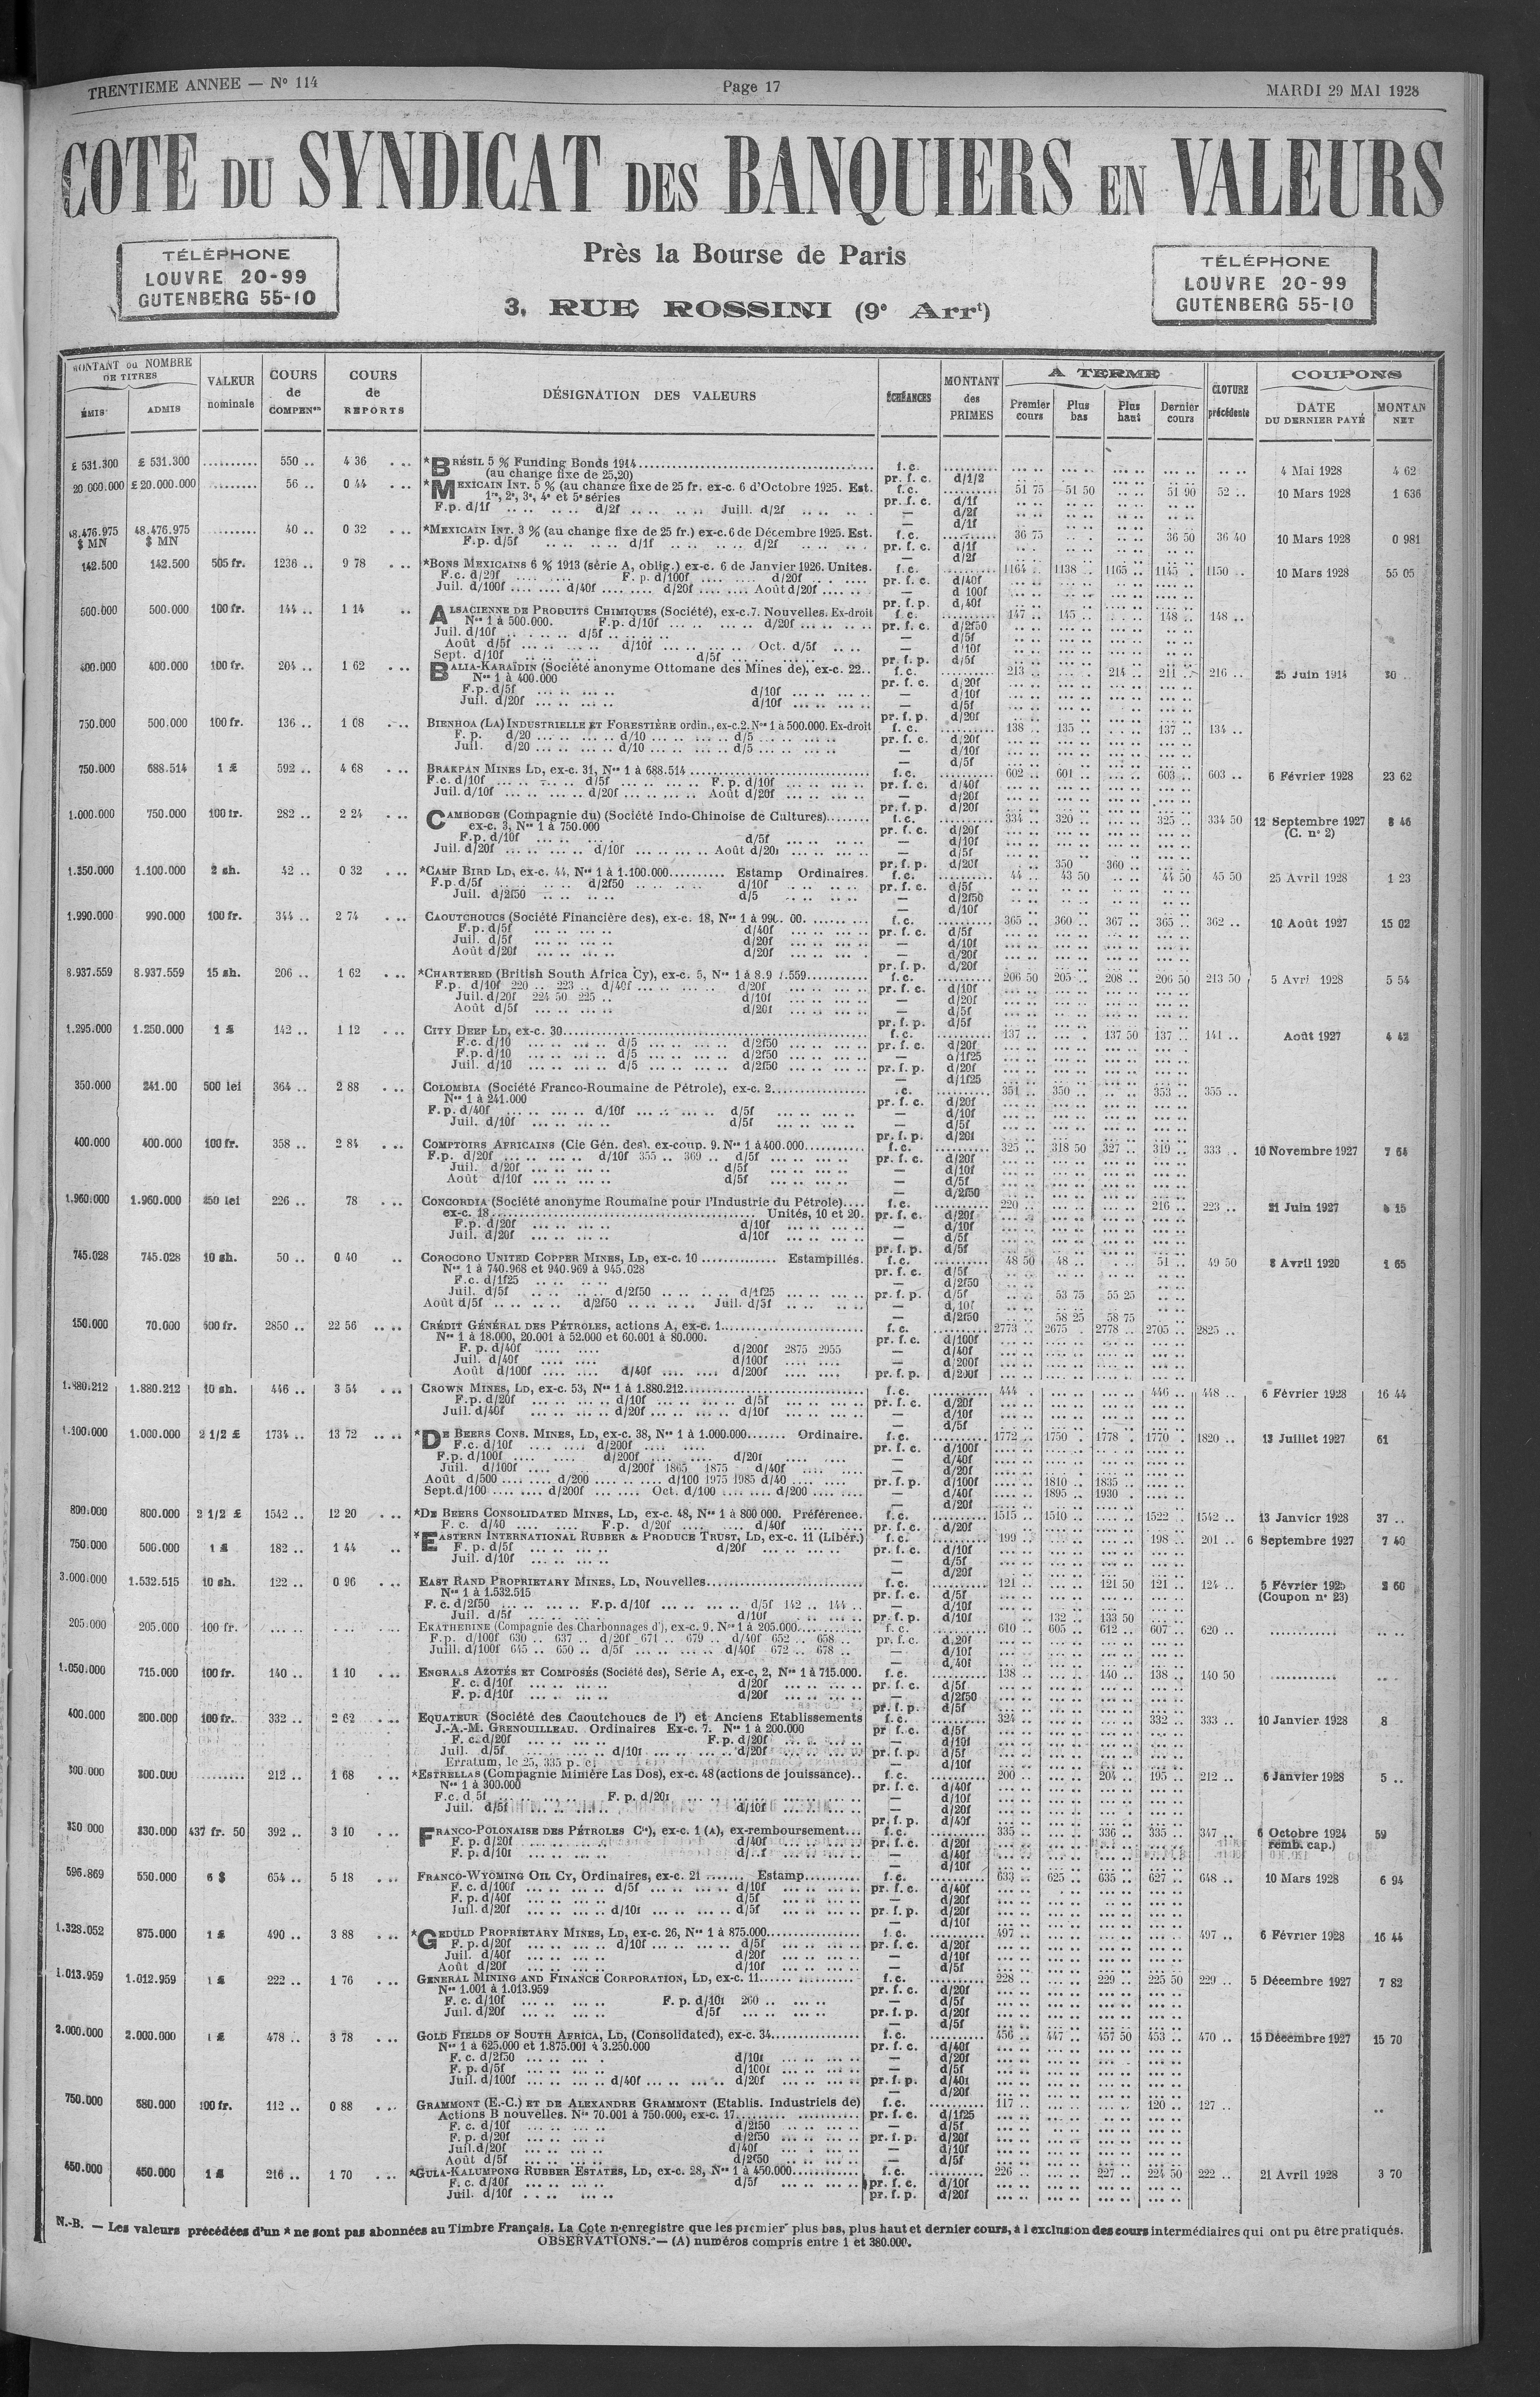 TRENTIEME ANNEE — N° 114
Page 17
MARDI 29 MAI 1928
COTE DU SYNDICAT DES BANQUIERS EN VALEURS
TÉLÉPHONE
LOUVRE 20-99
GUTENBERG 55-10
Près la Bourse de Paris
3, RUE ROSSINI (9e Arrt)
TÉLÉPHONE
LOUVRE 20-99
GUTENBERG 55-10
MONTANT ou NOMBRE DE TITRES
ÉMIS
ADMIS
VALEUR nominale
COURS de COMPENon
COURS de REPORTS
DÉSIGNATION DES VALEURS
ÉCHÉANCES
MONTANT des PRIMES
A TERME
Premier cours
Plus bas
Plus haut
Dernier cours
CLOTURE précédente
COUPONS
DATE DU DERNIER PAYÉ
MONTAN NET
£ 531.300 £ 531.300 .......... 550 .. 4 36 *BRÉSIL 5 % Funding Bonds 1914 f. c. 4 Mai 1928 4 62
(au change fixe de 25,20) pr. f. c. d/1/2
20.000.000 £ 20.000.000 56 .. 0 44 *MEXICAIN INT. 5 % (au change fixe de 25 fr. ex-c. 6 d'Octobre 1925. Est. f. c. 51 75 51 50 51 90 52 .. 10 Mars 1928 1 636
1re, 2e, 3e, 4e et 5e séries pr. f. c. d/1f
F.p. d/1f d/2f Juill. d/2f — d/2f
48.476.975 $ MN 48.476.975 $ MN 40 .. 0 32 *MEXICAIN INT. 3 % (au change fixe de 25 fr.) ex-c. 6 de Décembre 1925. Est. f. c. 36 75 36 50 36 40 10 Mars 1928 0 981
F.p. d/5f d/1f d/2f pr. f. c. d/1f
142.500 142.500 505 fr. 1236 .. 9 78 *BONS MEXICAINS 6 % 1913 (série A, oblig.) ex-c. 6 de Janvier 1926. Unités. f. c. 1164 .. 1138 .. 1165 .. 1145 . 1150 .. 10 Mars 1928 55 05
F.c. d/20f F. p. d/100f d/20f pr. f. c. d/40f
Juil. d/100f d/40f d/20f Août d/20f — d 100f
500.000 500.000 100 fr. 144 .. 1 14 ALSACIENNE DE PRODUITS CHIMIQUES (Société), ex-c. 7. Nouvelles. Ex-droit f. c. 147 .. 145 .. 148 .. 148 ..
Nos 1 à 500.000. F.p. d/10f d/20f pr. f. c. d/2f50
Juil. d/10f d/5f — d/5f
Août d/5f d/10f Oct. d/5f — d/10f
Sept. d/10f d/5f pr. f. p. d/5f
400.000 400.000 100 fr. 204 .. 1 62 BALIA-KARAÏDIN (Société anonyme Ottomane des Mines de), ex-c. 22.. f. c. 213 .. 214 .. 211 .. 216 .. 25 Juin 1914 30 ..
Nos 1 à 400.000 pr. f. c. d/20f
F.p. d/5f d/10f — d/10f
Juil. d/20f d/10f — d/5f
pr. f. p. d/20f
750.000 500.000 100 fr. 136 .. 1 08 BIENHOA (LA) INDUSTRIELLE ET FORESTIÈRE ordin., ex-c. 2. Nos 1 à 500.000. Ex-droit f. c. 138 .. 135 .. 137 .. 134 ..
F. p. d/20 d/10 d/5 pr. f. c. d/20f
Juil. d/20 d/10 d/5 — d/10f
— d/5f
750.000 688.514 1 £ 592 .. 4 68 BRAKPAN MINES LD, ex-c. 31, Nos 1 à 688.514 f. c. 602 .. 601 .. 603 .. 603 .. 6 Février 1928 23 62
F.c. d/10f d/5f F. p. d/10f pr. f. c. d/40f
Juil. d/10f d/20f Août d/20f — d/20f
pr. f. p. d/20f
1.000.000 750.000 100 fr. 282 .. 2 24 CAMBODGE (Compagnie du) (Société Indo-Chinoise de Cultures) f. c. 334 .. 320 .. 325 .. 334 50 12 Septembre 1927 8 46
ex-c. 3, Nos 1 à 750.000 pr. f. c. d/20f (C. n° 2)
F.p. d/10f d/5f — d/10f
Juil. d/20f d/10f Août d/20f — d/5f
pr. f. p. d/20f 350 360 ..
1.350.000 1.100.000 2 sh. 42 .. 0 32 *CAMP BIRD LD, ex-c. 44, Nos 1 à 1.100.000 Estamp Ordinaires. f. c. 44 .. 43 50 44 50 45 50 25 Avril 1928 1 23
F.p d/5f d/2f50 d/10f pr. f. c. d/5f
Juil. d/2f50 d/5 — d/2f50
— d/10f
1.990.000 990.000 100 fr. 344 .. 2 74 CAOUTCHOUCS (Société Financière des), ex-c. 18, f. c. 365 .. 360 .. 367 .. 365 .. 362 .. 10 Août 1927 15 02
F.p. d/5f d/40f pr. f. c. d/5f
Juil. d/5f d/20f — d/10f
Août d/20f d/20f — d/20f
pr. f. p. d/20f
8.937.559 8.937.559 15 sh. 206 .. 1 62 *CHARTERED (British South Africa Cy), ex-c. 5, f. c. 206 50 205 .. 208 .. 206 50 213 50 5 Avri 1928 5 54
F.p. d/10f 220 .. 223 .. d/40f d/20f pr. f. c. d/10f
Juil. d/20f 224 50 225 .. d/10f — d/20f
Août d/5f d/20f — d/5f
pr. f. p. d/5f
1.295.000 1.250.000 1 £ 142 .. 1 12 CITY DEEP LD, ex-c. 30 f. c. 137 .. 137 50 137 .. 141 .. Août 1927 4 42
F.c. d/10 d/5 d/2f50 pr. f. c. d/20f
F.p. d/10 d/5 d/2f50 — d/1f25
Juil. d/10 d/5 d/2f50 pr. f. p. d/20f
— d/1f25
350.000 241.00 500 lei 364 .. 2 88 COLOMBIA (Société Franco-Roumaine de Pétrole), ex-c. 2 .c. 351 .. 350 .. 353 .. 355 ..
Nos 1 à 241.000 pr. f. c. d/20f
F. p. d/40f d/10f d/5f — d/10f
Juil. d/10f d/5f — d/5f
pr. f. p. d/20f
400.000 400.000 100 fr. 358 .. 2 84 COMPTOIRS AFRICAINS (Cie Gén. des), ex-coup. 9. Nos 1 à 400.000 f. c. 325 .. 318 50 327 .. 319 .. 333 . 10 Novembre 1927 7 64
F.p. d/20f d/10f 355 .. 369 .. d/5f pr. f. c. d/20f
Juil. d/20f d/5f — d/10f
Août d/10f d/5f — d/5f
— d/2f50
1.960.000 1.960.000 250 lei 226 .. 78 CONCORDIA (Société anonyme Roumaine pour l'Industrie du Pétrole) f. c. 220 .. 216 .. 223 .. 21 Juin 1927 15
ex-c. 18 Unités, 10 et 20. pr. f. c. d/20f
F.p. d/20f d/10f — d/10f
Juil. d/20f d/10f — d/5f
pr. f. p. d/5f
745.028 745.028 10 sh. 50 .. 0 40 COROCORO UNITED COPPER MINES, LD, ex-c. 10 Estampillés. f. c. 48 50 48 .. 51 .. 49 50 8 Avril 1920 1 65
Nos 1 à 740.968 et 940.969 à 945.028 pr. f. c. d/5f
F.c. d/1f25 — d/2f50
Juil. d/5f d/2f50 d/1f25 pr. f. p. d/5f 53 75 55 25
Août d/5f d/2f50 Juil. d/5f — d, 10f
— d/2f50 58 25 58 75
150.000 70.000 500 fr. 2850 .. 22 56 CRÉDIT GÉNÉRAL DES PÉTROLES, actions A, ex-c. 1 f. c. 2773 .. 2675 . 2778 .. 2705 .. 2825 ..
Nos 1 à 18.000, 20.001 à 52.000 et 60.001 à 80.000. pr. f. c. d/100f
F. p. d/40f d/200f 2875 2955 — d/40f
Juil. d/40f d/100f — d/200f
Août d/100f d/40f d/200f pr. f. p. d/200f
1.880.212 1.880.212 10 sh. 446 .. 3 54 CROWN MINES, LD, ex-c. 53, Nos 1 à 1.880.212 f. c. 444 . 446 .. 448 .. 6 Février 1928 16 44
F.p. d/20f d/10f d/5f pr. f. c. d/20f
Juil. d/40f d/20f d/10f — d/10f
— d/5f
1.100.000 1.000.000 2 1/2 £ 1734 .. 13 72 *DE BEERS CONS. MINES, LD, ex-c. 38, Nos 1 à 1.000.000 Ordinaire. f. c. 1772 .. 1750 . 1778 .. 1770 . 1820 .. 13 Juillet 1927 61
F.c. d/10f d/200f pr. f. c. d/100f
F.p. d/100f d/200f d/20f — d/40f
Juil. d/100f d/200f 1865 1875 d/40f — d/20f
Août d/500 d/200 d/100 1975 1985 d/40 pr. f. p. d/100f 1810 .. 1835 ..
Sept. d/100 d/200f Oct. d/100 d/200 — d/40f 1895 1930
— d/20f
800.000 800.000 2 1/2 £ 1542 .. 12 20 *DE BEERS CONSOLIDATED MINES, LD, ex-c. 48, Nos 1 à 800 000. Préférence. f. c. 1515 .. 1510 .. 1522 .. 1542 .. 13 Janvier 1928 37 ..
F. c. d/40 F.p. d/20f d/40f pr. f. c. d/20f
750.000 500.000 1 £ 182 .. 1 44 *EASTERN INTERNATIONAL RUBBER & PRODUCE TRUST, LD, ex-c. 11 (Libér.) f. c. 199 .. 198 .. 201 .. 6 Septembre 1927 7 40
F. p. d/5f d/20f pr. f. c. d/10f
Juil. d/10f — d/5f
— d/20f
3.000.000 1.532.515 10 sh. 122 .. 0 96 EAST RAND PROPRIETARY MINES, LD, Nouvelles f. c. 121 .. 121 50 121 .. 124 .. 5 Février 1925 60
Nos 1 à 1.532.515 pr. f. c. d/5f (Coupon n° 23)
F. c. d/2f50 F.p. d/10f d/5f 142 .. 144 .. — d/10f
Juil. d/5f d/10f pr. f. p. d/10f 132 .. 133 50
205.000 205.000 100 fr. EKATHERINE (Compagnie des Charbonnages d'), ex-c. 9. Nos 1 à 205.000 f. c. 610 .. 605 .. 612 .. 607 .. 620 ..
F.p. d/100f 630 .. 637 .. d/20f 671 .. 679 .. d/40f 652 .. 658 .. pr. f. c. d.20f
Juill. d/100f 645 .. 650 .. d/5f d/40f 672 .. 678 .. — d/10f
— d/40f
1.050.000 715.000 100 fr. 140 .. 1 10 ENGRAIS AZOTÉS ET COMPOSÉS (Société des), Série A, ex-c, 2, Nos 1 à 715.000. f. c. 138 .. 140 .. 138 .. 140 50
F. c. d/10f d/20f pr. f. c. d/5f
F. p. d/10f d/20f — d/2f50
pr. f. p. d/5f
400.000 200.000 100 fr. 332 .. 2 62 EQUATEUR (Société des Caoutchoucs de l') et Anciens Etablissements f. c. 324 .. 332 .. 333 .. 10 Janvier 1928 8
J.-A.-M. GRENOUILLEAU. Ordinaires Ex-c. 7. Nos 1 à 200.000 pr f. c. d/5f
F. c. d/20f F.p. d/20f — d/10f
Juil. d/5f d/10f d/20f pr. f. p. d/5f
Erratum, le 25, 335 p. — d/10f
300.000 300.000 212 .. 1 68 *ESTRELLAS (Compagnie Minière Las Dos), ex-c. 48 (actions de jouissance).. f. c. 200 .. 204 .. 195 .. 212 .. 6 Janvier 1928 5 ..
Nos 1 à 300.000 pr. f. c. d/40f
F.c. d 5f F. p. d/20f — d/10f
Juil. d/5f d/10f — d/20f
pr. f. p. d/40f
350 000 330.000 437 fr. 50 392 .. 3 10 FRANCO-POLONAISE DES PÉTROLES Cie), ex-c. 1 (A), ex-remboursement f. c. 335 .. 336 .. 335 .. 347 .. 6 Octobre 1924 59
F. p. d/20f d/40f pr. f. c. d/20f remb. cap.)
F. p. d/10f — d/40f
— d/10f
596.869 550.000 6 $ 654 .. 5 18 FRANCO-WYOMING OIL CY, Ordinaires, ex-c. 21 Estamp. f. c. 633 .. 625 .. 635 .. 627 .. 648 .. 10 Mars 1928 6 94
F. c. d/100f d/5f d/10f pr. f. c. d/40f
F. p. d/40f d/5f — d/20f
Juil. d/20f d/10f d/5f pr. f. p. d/20f
— d/10f
1.328.052 875.000 1 £ 490 .. 3 88 *GEDULD PROPRIETARY MINES, LD, ex-c. 26, Nos 1 à 875.000 f. c. 497 .. 497 .. 6 Février 1928 16 44
F. p. d/20f d/10f d/5f pr. f. c. d/20f
Juil. d/40f d/20f — d/10f
Août d/20f d/10f — d/5f
1.013.959 1.012.959 1 £ 222 .. 1 76 GENERAL MINING AND FINANCE CORPORATION, LD, ex-c. 11 f. c. 228 .. 229 .. 225 50 229 .. 5 Décembre 1927 7 82
Nos 1.001 à 1.013.959 pr. f. c. d/20f
F. c. d/10f F. p. d/10f 260 .. — d/5f
Juil. d/20f d/5f pr. f. p. d/20f
— d/5f
2.000.000 2.000.000 1 £ 478 .. 3 78 GOLD FIELDS OF SOUTH AFRICA, LD, (Consolidated), ex-c. 34 f. c. 456 .. 447 .. 457 50 453 .. 470 .. 15 Décembre 1927 15 70
Nos 1 à 625.000 et 1.875.001 à 3.250.000 pr. f. c. d/40f
F. c. d/2f50 d/10f — d/20f
F. p. d/5f d/100f — d/5f
Juil. d/100f d/40f d/20f pr. f. p. d/40f
— d/20f
750.000 680.000 100 fr. 112 .. 0 88 GRAMMONT (E.-C.) ET DE ALEXANDRE GRAMMONT (Etablis. Industriels de) f. c. 117 .. 120 .. 127 ..
Actions B nouvelles. Nos 70.001 à 750.000, ex-c. 17 pr. f. c. d/1f25
F. c. d/10f d/2f50 — d/5f
F. p. d/20f d/2f50 pr. f. p. d/20f
Juil. d/20f d/40f — d/10f
Août d/5f d/2f50 — d/5f
450.000 450.000 1 £ 216 .. 1 70 *GULA-KALUMPONG RUBBER ESTATES, LD, ex-c. 28, Nos 1 à 450.000 f. c. 226 .. 227 .. 224 50 222 .. 21 Avril 1928 3 70
F. c. d/10f d/5f pr. f. c. d/10f
Juil. d/10f pr. f. p. d/20f
N.-B. — Les valeurs précédées d'un * ne sont pas abonnées au Timbre Français. La Cote n'enregistre que les premier plus bas, plus haut et dernier cours, à l exclusion des cours intermédiaires qui ont pu être pratiqués.
OBSERVATIONS. — (A) numéros compris entre 1 et 380.000.